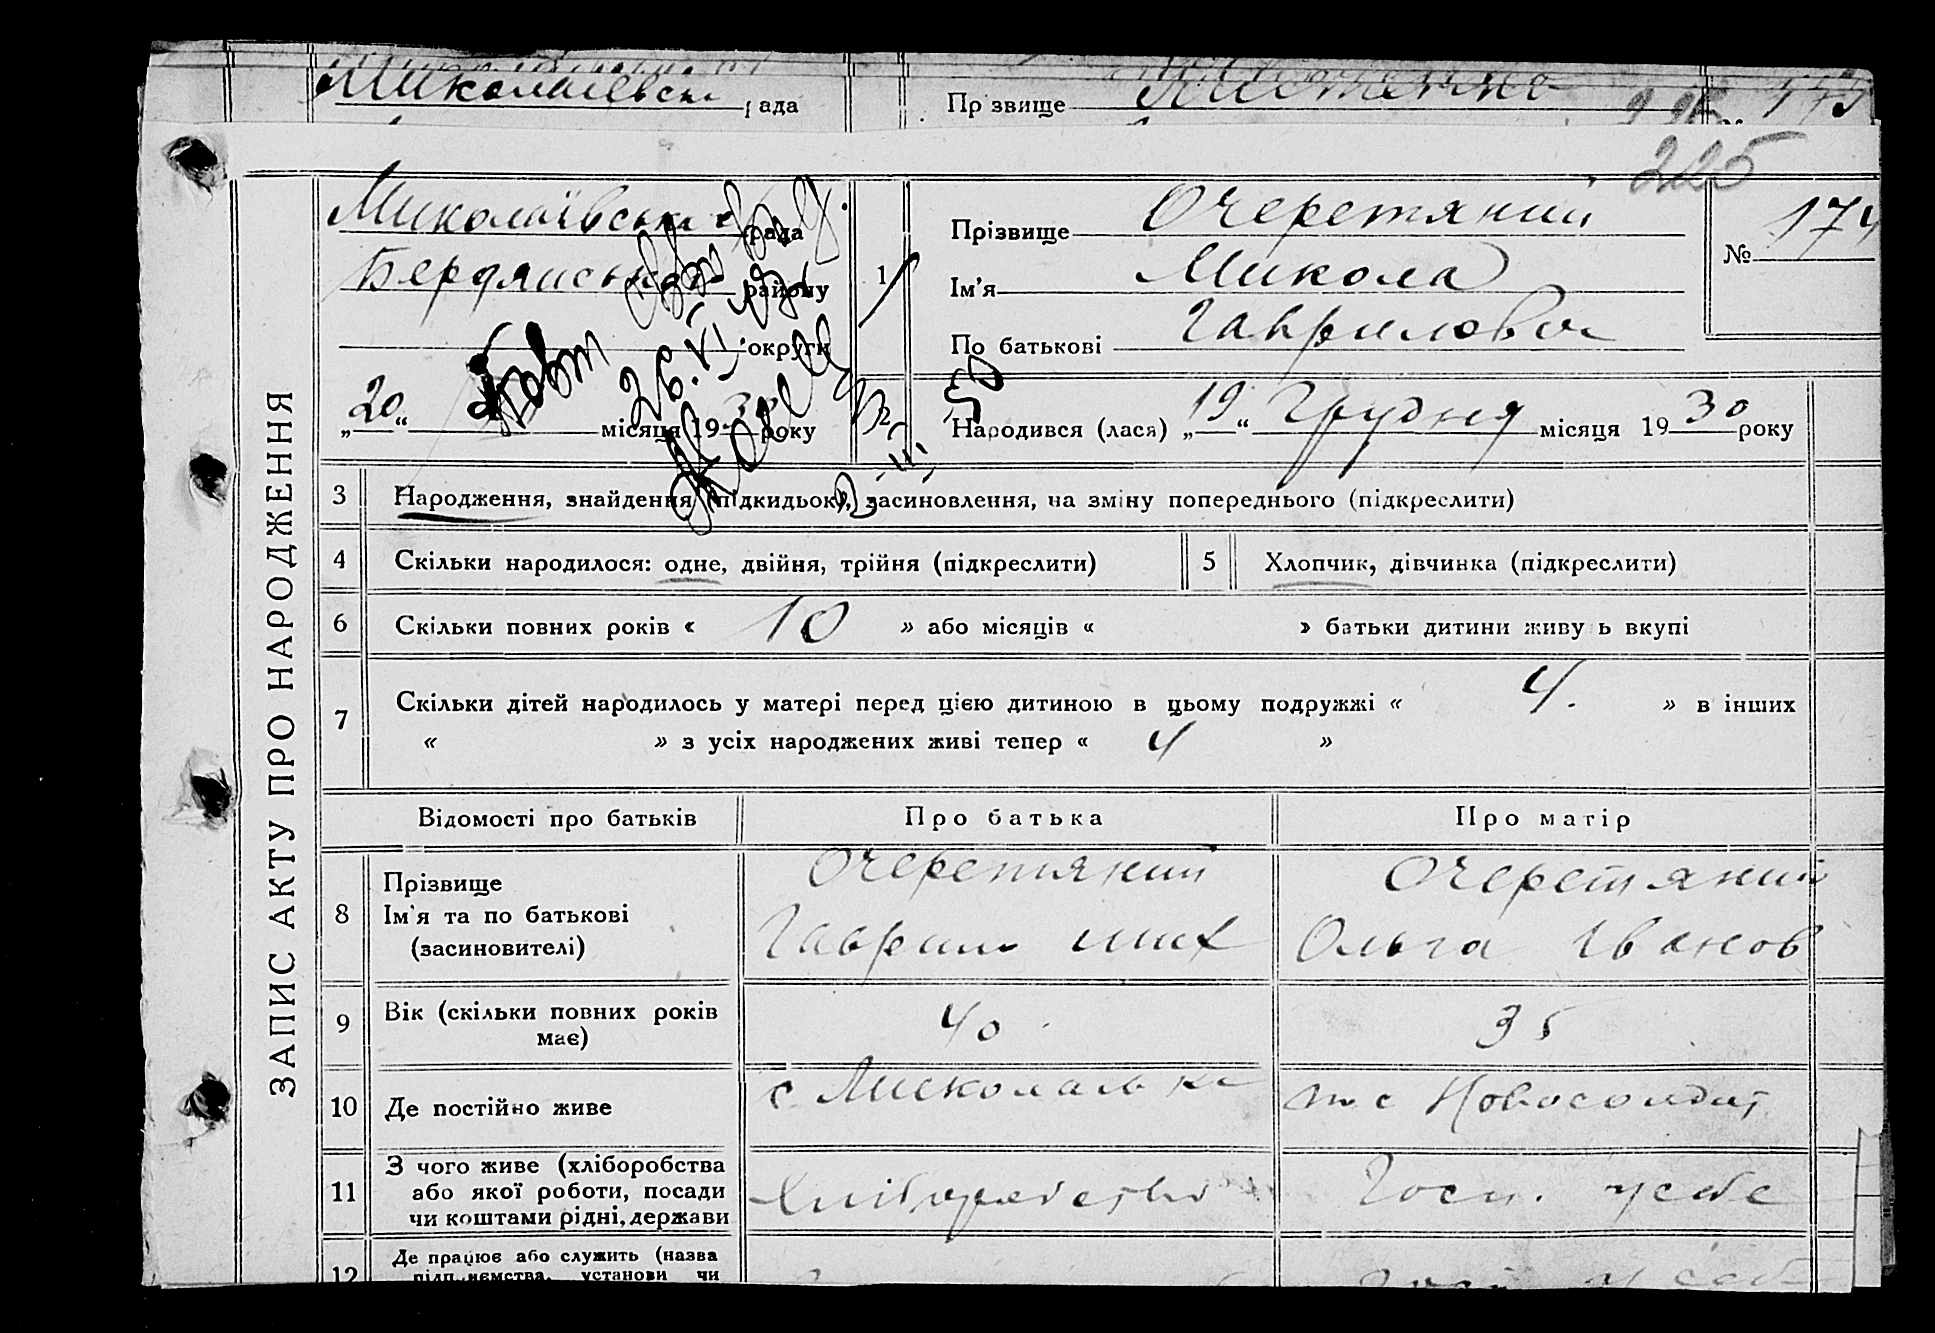 Миколаївськ рада
Прізвище
225
Миколаївська рада
Бердянського району
округи
„20“ місяця 1930 року
Повт
1
Прізвище Очеретяний
Ім'я Микола
По батькові Гаврилович
№ 174
2
Народився (лася) „19“ Грудня місяця 1930 року
ЗАПИС АКТУ ПРО НАРОДЖЕННЯ
3 Народження, знайдення (підкидьок), засиновлення, на зміну попереднього (підкреслити)
4 Скільки народилося: одне, двійня, трійня (підкреслити)
5 Хлопчик, дівчинка (підкреслити)
6 Скільки повних років « 10 » або місяців « » батьки дитини живуть вкупі
7 Скільки дітей народилось у матері перед цією дитиною в цьому подружжі « 4. » в інших
« » з усіх народжених живі тепер « 4 »
Відомості про батьків Про батька Про матір
8 Прізвище
Ім'я та по батькові
(засиновителі)
Очеретяний
Гаврило
Очеретяний
Ольга Іванов
9 Вік (скільки повних років має) 40 35
10 Де постійно живе с
11 З чого живе (хліборобства
або якої роботи, посади
чи коштами рідні, держави
Хліборобство
Госп.
12 Де працює або служить (назва
підприємства, установи чи